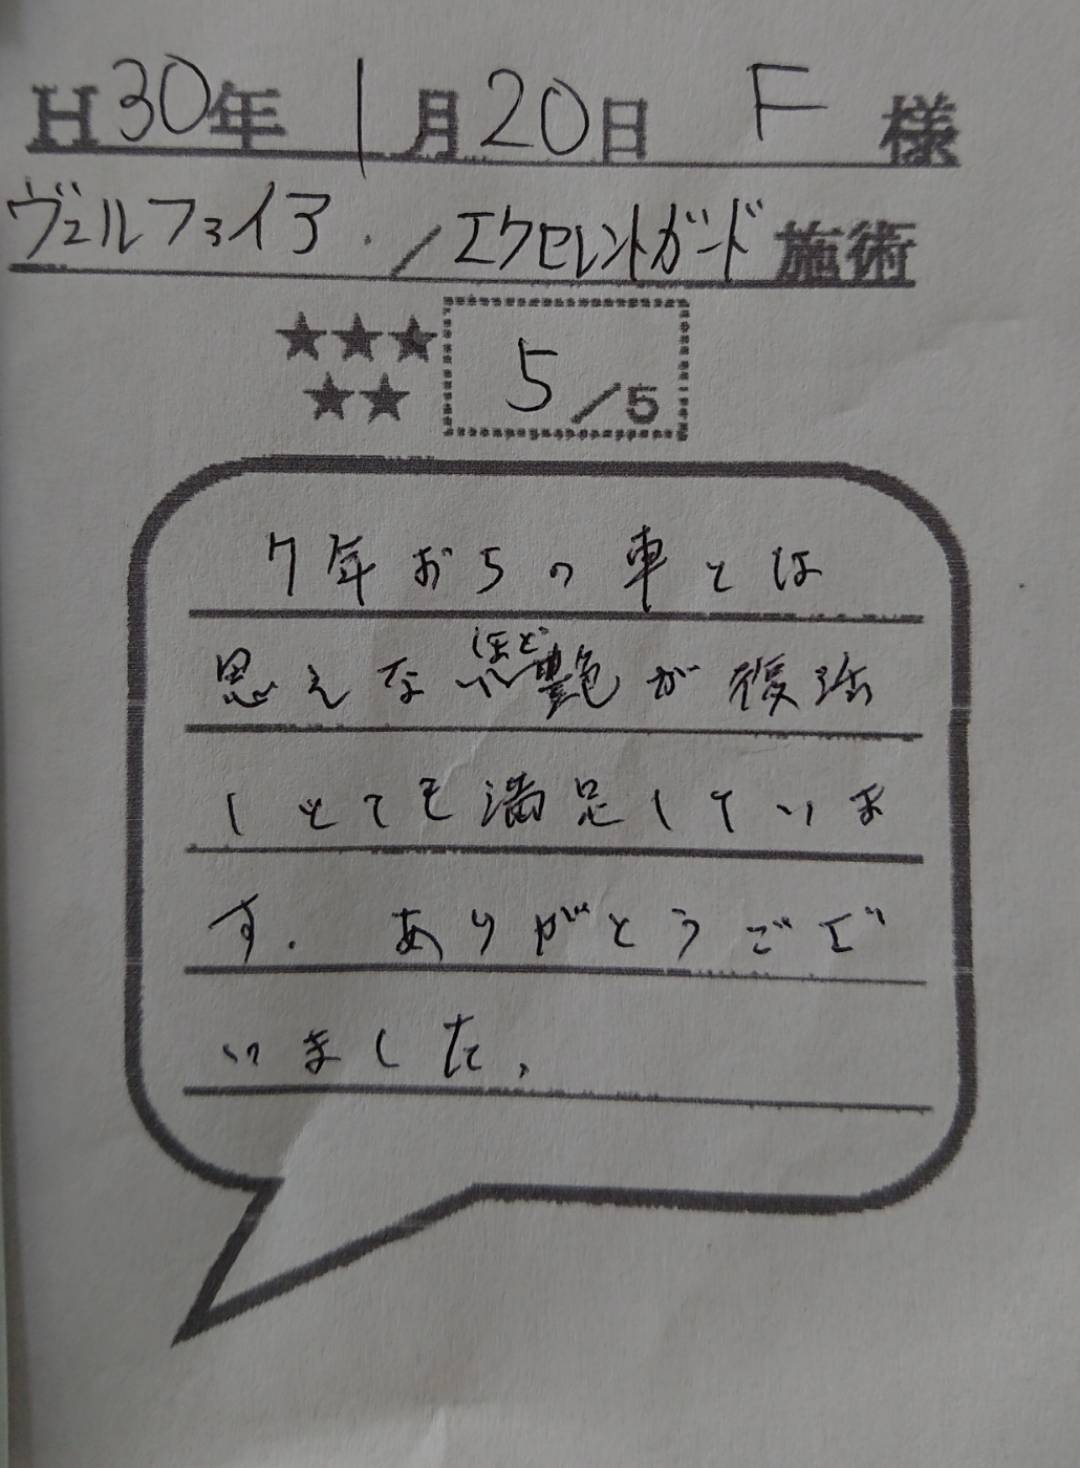 H30年 1月20日 F 様
ヴェルファイア . / エクセレントガード 施術
★★★
★★
5/5
7年おちの車とは
思えないほど艶が復活
しとても満足していま
す. ありがとうござ
いました、